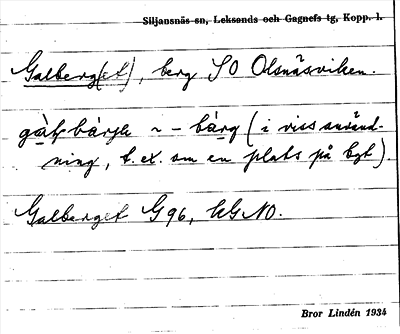 Siljansnäs sn, Leksands och Gagnefs tg, Kopp. l.
Galberg(et), berg SO Olsnäsviken.
~ - bàrg (i viss använd-
ning, t.ex. om en plats på bgt).
Galberget G96, kG NO.
Bror Lindén 1934